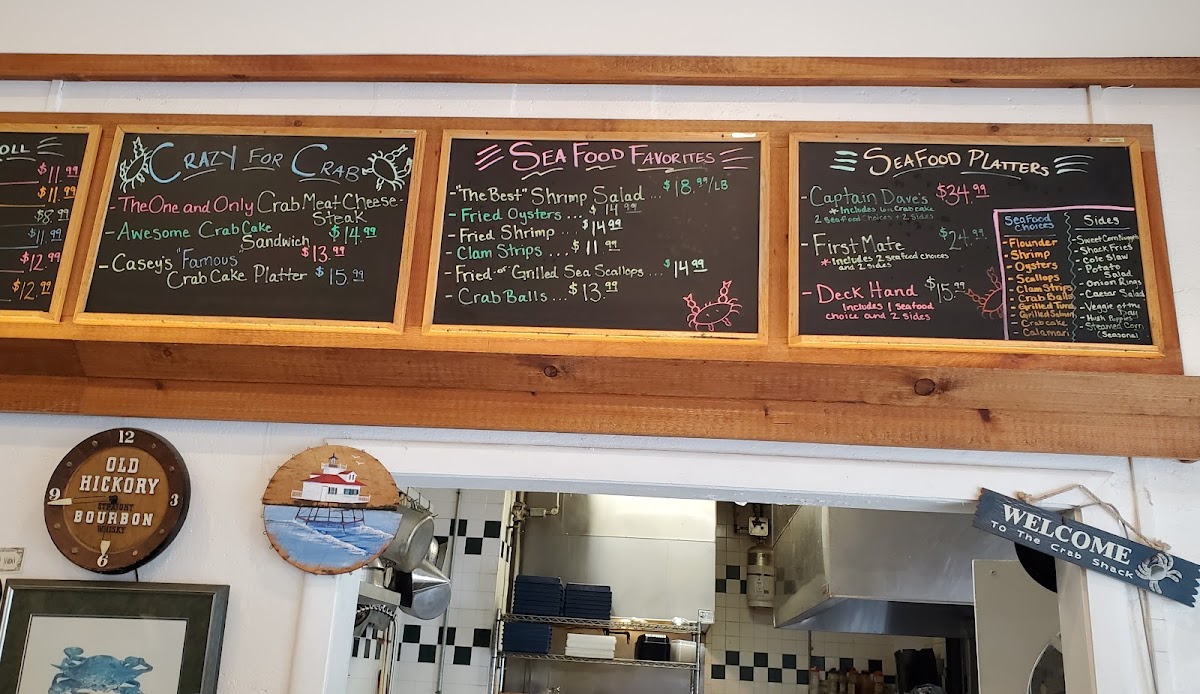 OLL
$11.99
$11.99
$8.99
$11.99
$12.99
$12.99
CRAZY FOR CRAB
- The One and Only Crab Meat Cheese-
Steak
- Awesome Crab Cake $14.99
Sandwich $13.99
- Casey's "Famous"
Crab Cake Platter $15.99
SEAFOOD FAVORITES
- "The Best" Shrimp Salad ... $18.99/LB
- Fried Oysters ... $14.99
- Fried Shrimp ... $14.99
- Clam Strips ... $11.99
- Fried -or- Grilled Sea Scallops ... $14.99
- Crab Balls ... $13.99
SEAFOOD PLATTERS
- Captain Dave's $34.99
*Includes Crab cake
2 seafood choices + 2 sides
- First Mate $24.99
*Includes 2 seafood choices
and 2 sides
- Deck Hand $15.99
Includes 1 seafood
choice and 2 sides
Seafood
Choices
- Flounder
- Shrimp
- Oysters
- Scallops
- Clam Strips
- Crab Balls
- Grilled Tuna
- Grilled Salmon
- Crabcake
- Calamari
Sides
- Sweet Corn Nuggets
- Shack Fries
- Cole Slaw
- Potato
Salad
- Onion Rings
- Caesar Salad
- Veggie of the
Day
- Hush Puppies
- Steamed Corn
(Seasonal)
12
OLD
HICKORY
9 3
STRAIGHT
BOURBON
WHISKY
6
WELCOME
To The Crab Shack